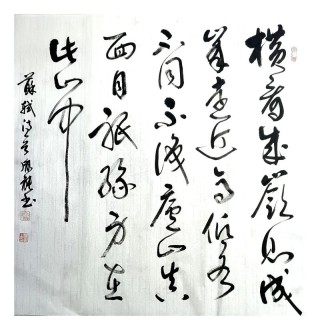 橫看成嶺側成
峯遠近高低各
不同不識廬山真
面目祇緣身在
此山中
蘇軾詩 書